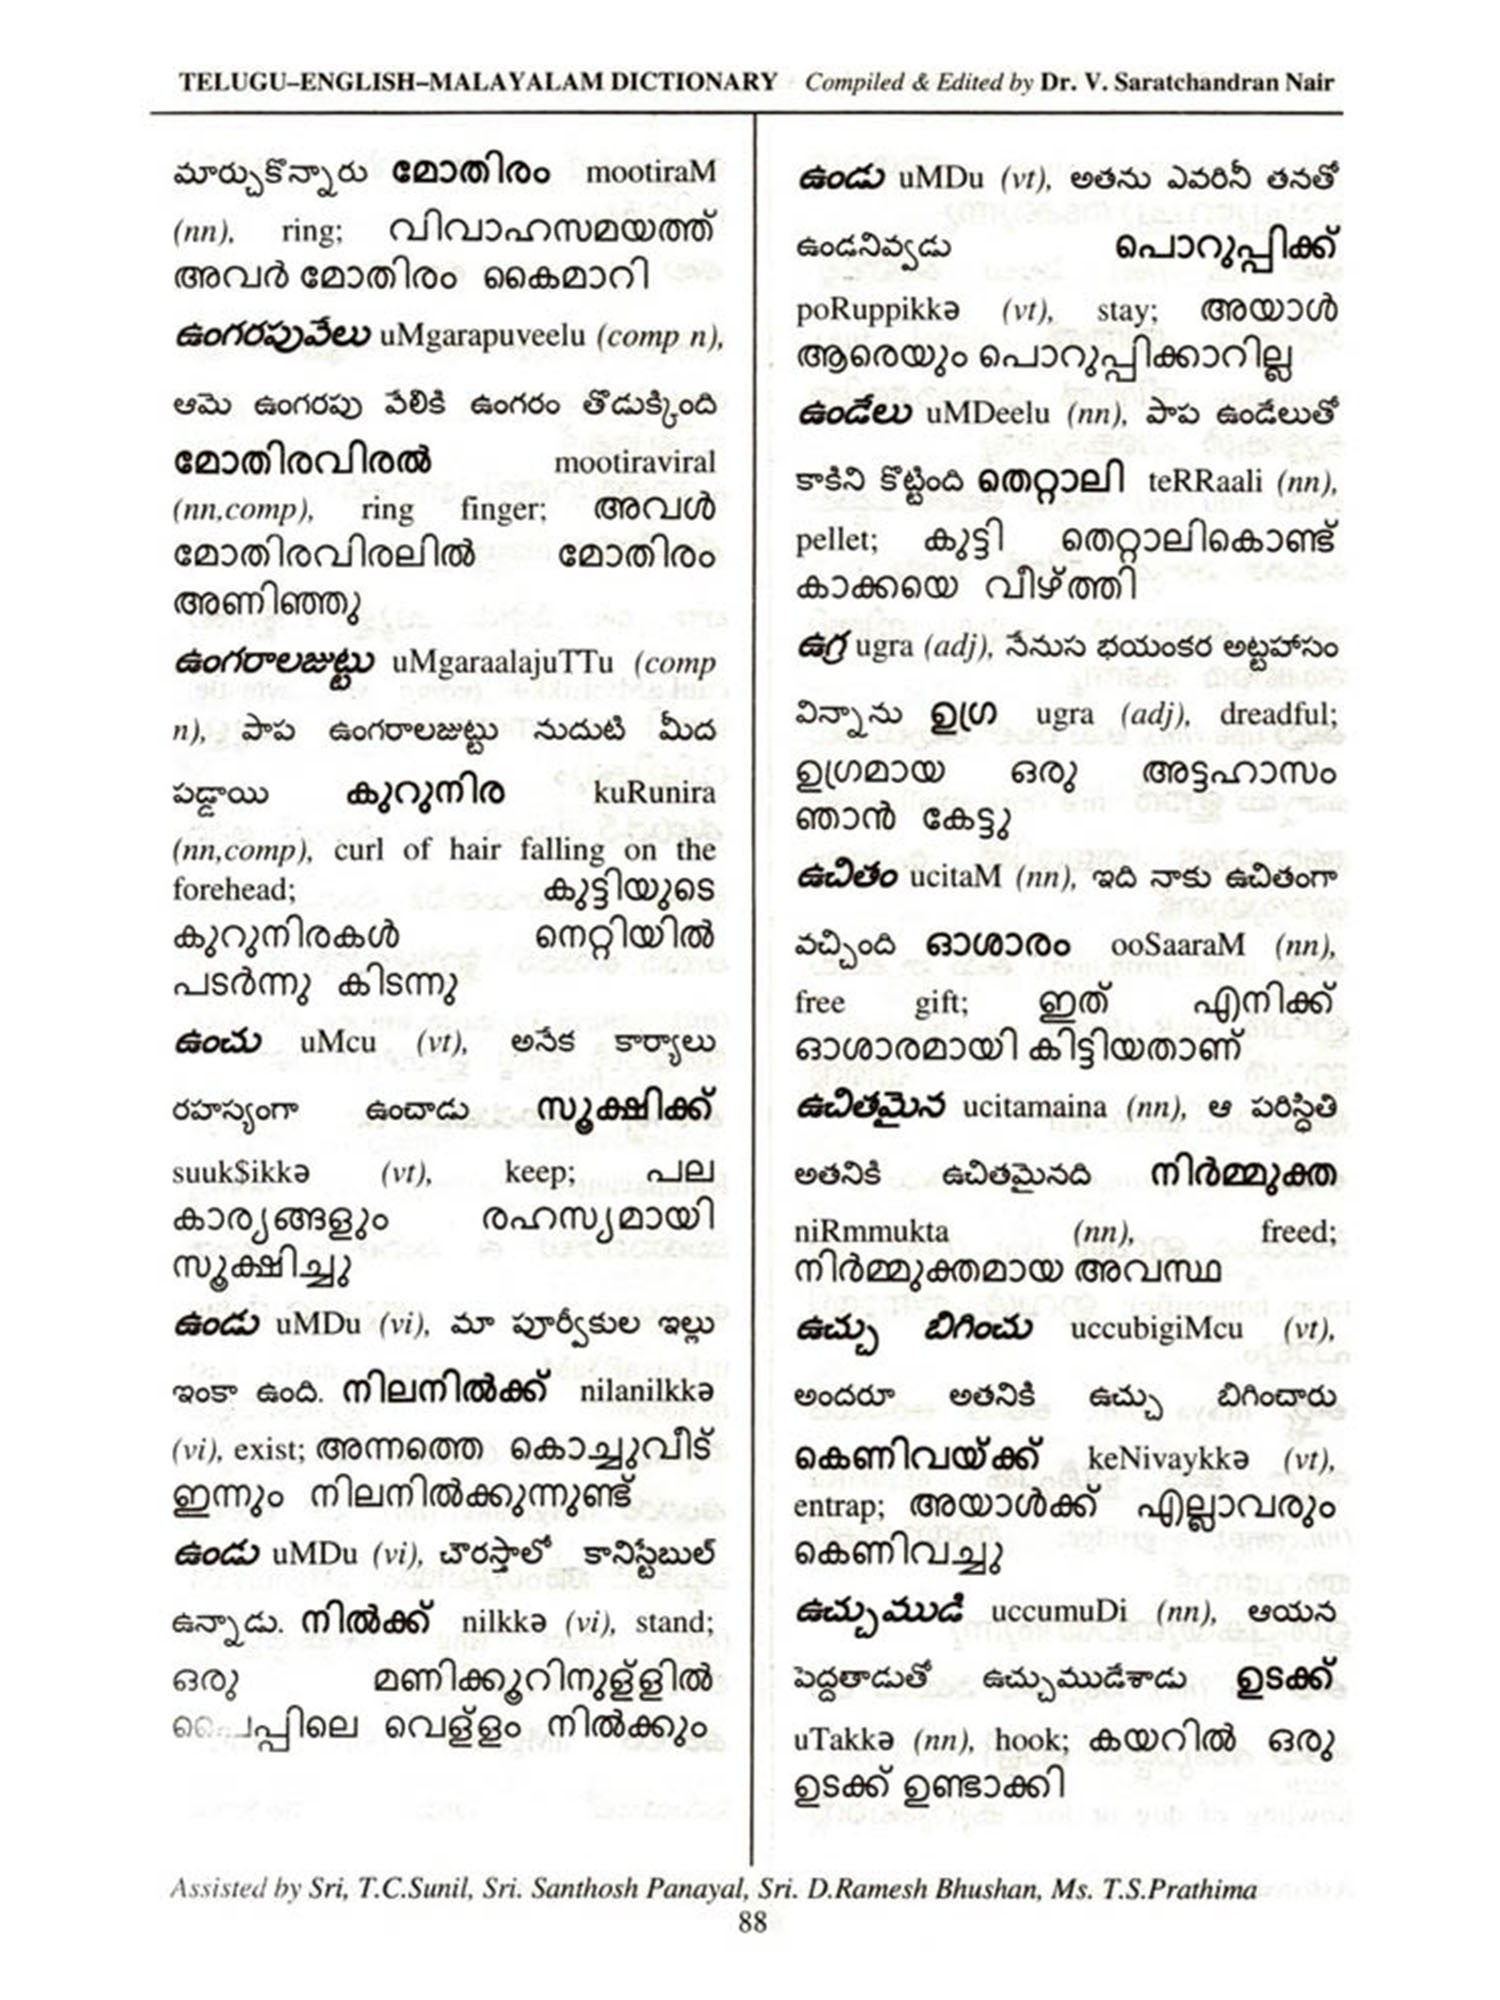 TELUGU–ENGLISH–MALAYALAM DICTIONARY Compiled & Edited by Dr. V. Saratchandran Nair
మార్చుకొన్నారు മോതിരം mootiraM
(nn), ring; വിവാഹസമയത്ത്
അവർ മോതിരം കൈമാറി
ఉంగరపువేలు uMgarapuveelu (comp n),
ఆమె ఉంగరపు వేలికి ఉంగరం తొడుక్కింది
മോതിരവിരൽ mootiraviral
(nn,comp), ring finger; അവൾ
മോതിരവിരലിൽ മോതിരം
അണിഞ്ഞു
ఉంగరాలజుట్టు uMgaraalajuTTu (comp
n), పాప ఉంగరాలజుట్టు నుదుటి మీద
పడ్డాయి കുറുനിര kuRunira
(nn,comp), curl of hair falling on the
forehead; കുട്ടിയുടെ
കുറുനിരകൾ നെറ്റിയിൽ
പടർന്നു കിടന്നു
ఉంచు uMcu (vt), అనేక కార్యాలు
రహస్యంగా ఉంచాడు സൂക്ഷിക്ക്
suuk$ikkə (vt), keep; പല
കാര്യങ്ങളും രഹസ്യമായി
സൂക്ഷിച്ചു
ఉండు uMDu (vi), మా పూర్వీకుల ఇల్లు
ఇంకా ఉంది. നിലനിൽക്ക് nilanilkkə
(vi), exist; അന്നത്തെ കൊച്ചുവീട്
ഇന്നും നിലനിൽക്കുന്നുണ്ട്
ఉండు uMDu (vi), చౌరస్తాలో కానిస్టేబుల్
ఉన్నాడు. നിൽക്ക് nilkkə (vi), stand;
ഒരു മണിക്കൂറിനുള്ളിൽ
പൈപ്പിലെ വെള്ളം നിൽക്കും
ఉండు uMDu (vt), అతను ఎవరినీ తనతో
ఉండనివ్వడు പൊറുപ്പിക്ക്
poRuppikkə (vt), stay; അയാൾ
ആരെയും പൊറുപ്പിക്കാറില്ല
ఉండేలు uMDeelu (nn), పాప ఉండేలుతో
కాకిని కొట్టింది തെറ്റാലി teRRaali (nn),
pellet; കുട്ടി തെറ്റാലികൊണ്ട്
കാക്കയെ വീഴ്ത്തി
ఉగ్ర ugra (adj), నేనుస భయంకర అట్టహాసం
విన్నాను ഉഗ്ര ugra (adj), dreadful;
ഉഗ്രമായ ഒരു അട്ടഹാസം
ഞാൻ കേട്ടു
ఉచితం ucitaM (nn), ఇది నాకు ఉచితంగా
వచ్చింది ഓശാരം ooSaaraM (nn),
free gift; ഇത് എനിക്ക്
ഓശാരമായി കിട്ടിയതാണ്
ఉచితమైన ucitamaina (nn), ఆ పరిస్థితి
అతనికి ఉచితమైనది നിർമ്മുക്ത
niRmmukta (nn), freed;
നിർമ്മുക്തമായ അവസ്ഥ
ఉచ్చు బిగించు uccubigiMcu (vt),
అందరూ అతనికి ఉచ్చు బిగించారు
കെണിവയ്ക്ക് keNivaykkə (vt),
entrap; അയാൾക്ക് എല്ലാവരും
കെണിവച്ചു
ఉచ్చుముడి uccumuDi (nn), ఆయన
పెద్దతాడుతో ఉచ్చుముడేశాడు ഉടക്ക്
uTakkə (nn), hook; കയറിൽ ഒരു
ഉടക്ക് ഉണ്ടാക്കി
Assisted by Sri, T.C.Sunil, Sri. Santhosh Panayal, Sri. D.Ramesh Bhushan, Ms. T.S.Prathima
88